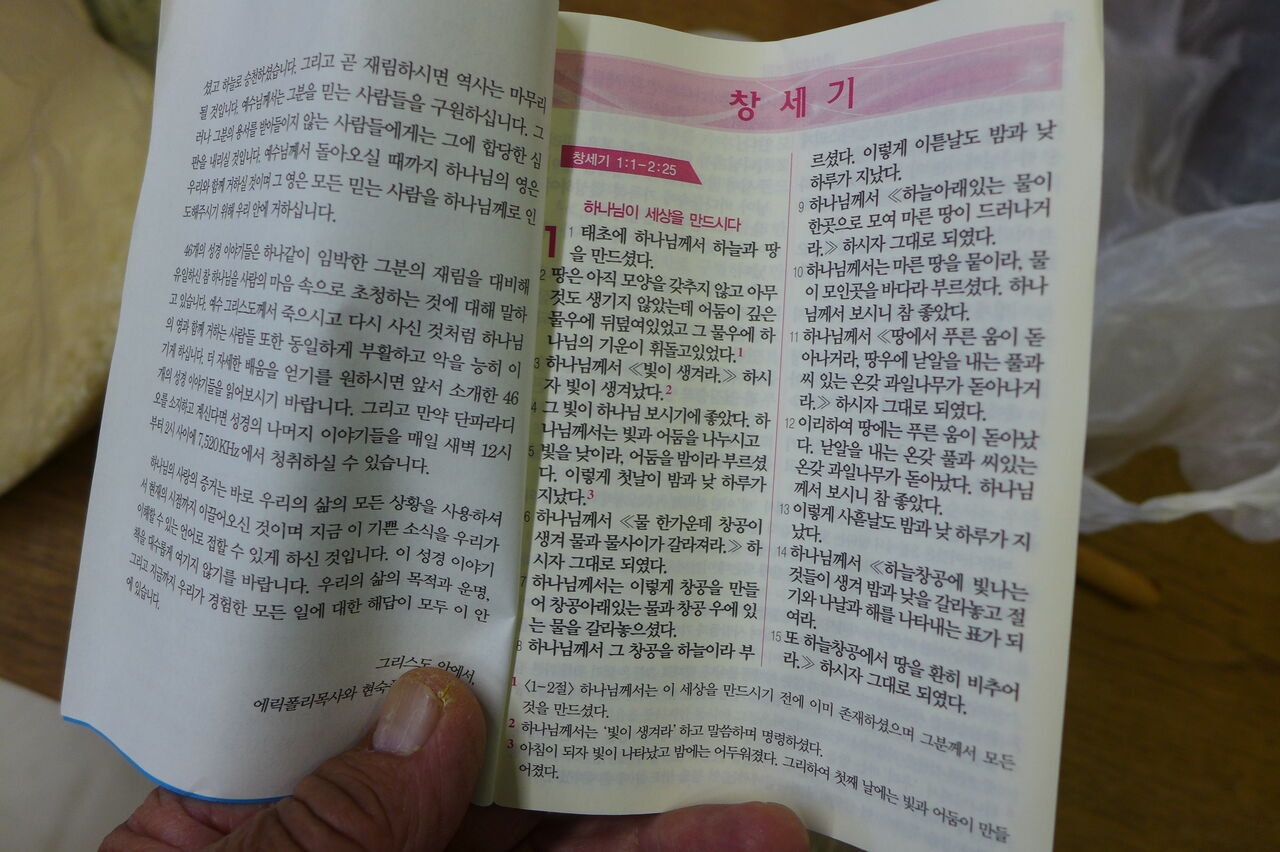 셨고 하늘로 승천하셨습니다. 그리고 곧 재림하시면 역사는 마무리
될 것입니다. 예수님께서는 그분을 믿는 사람들을 구원하십니다. 그
러나 그분의 용서를 받아들이지 않는 사람들에게는 그에 합당한 심
판을 내리실 것입니다. 예수님께서 돌아오실 때까지 하나님의 영은
우리와 함께 거하실 것이며 그 영은 모든 믿는 사람을 하나님께로 인
도해주시기 위해 우리 안에 거하십니다.
46개의 성경 이야기들은 하나같이 임박한 그분의 재림을 대비해
유일하신 참 하나님을 사람의 마음 속으로 초청하는 것에 대해 말하
고 있습니다. 예수 그리스도께서 죽으시고 다시 사신 것처럼 하나님
의 영과 함께 거하는 사람들 또한 동일하게 부활하고 악을 능히 이
기게 하십니다. 더 자세한 배움을 얻기를 원하시면 앞서 소개한 46
개의 성경 이야기들을 읽어보시기 바랍니다. 그리고 만약 단파라디
오를 소지하고 계신다면 성경의 나머지 이야기들을 매일 새벽 12시
부터 2시 사이에 7,520 KHz 에서 청취하실 수 있습니다.
하나님의 사랑의 증거는 바로 우리의 삶의 모든 상황을 사용하셔
서 현재의 시점까지 이끌어오신 것이며 지금 이 기쁜 소식을 우리가
이해할 수 있는 언어로 접할 수 있게 하신 것입니다. 이 성경 이야기
책을 대수롭게 여기지 않기를 바랍니다. 우리의 삶의 목적과 운명,
그리고 지금까지 우리가 경험한 모든 일에 대한 해답이 모두 이 안
에 있습니다.
그리스도 안에서,
에릭폴리목사와 현숙
창세기
창세기 1:1-2:25
하나님이 세상을 만드시다
1 1 태초에 하나님께서 하늘과 땅
을 만드셨다.
2 땅은 아직 모양을 갖추지 않고 아무
것도 생기지 않았는데 어둠이 깊은
물우에 뒤덮여있었고 그 물우에 하
나님의 기운이 휘돌고있었다.1
3 하나님께서 《빛이 생겨라.》 하시
자 빛이 생겨났다.2
4 그 빛이 하나님 보시기에 좋았다. 하
나님께서는 빛과 어둠을 나누시고
5 빛을 낮이라, 어둠을 밤이라 부르셨
다. 이렇게 첫날이 밤과 낮 하루가
지났다.3
6 하나님께서 《물 한가운데 창공이
생겨 물과 물사이가 갈라져라.》 하
시자 그대로 되였다.
7 하나님께서는 이렇게 창공을 만들
어 창공아래있는 물과 창공 우에 있
는 물을 갈라놓으셨다.
8 하나님께서 그 창공을 하늘이라 부
르셨다. 이렇게 이튿날도 밤과 낮
하루가 지났다.
9 하나님께서 《하늘아래있는 물이
한곳으로 모여 마른 땅이 드러나거
라.》 하시자 그대로 되였다.
10 하나님께서는 마른 땅을 뭍이라, 물
이 모인곳을 바다라 부르셨다. 하나
님께서 보시니 참 좋았다.
11 하나님께서 《땅에서 푸른 움이 돋
아나거라, 땅우에 낟알을 내는 풀과
씨 있는 온갖 과일나무가 돋아나거
라.》 하시자 그대로 되였다.
12 이리하여 땅에는 푸른 움이 돋아났
다. 낟알을 내는 온갖 풀과 씨있는
온갖 과일나무가 돋아났다. 하나님
께서 보시니 참 좋았다.
13 이렇게 사흗날도 밤과 낮 하루가 지
났다.
14 하나님께서 《하늘창공에 빛나는
것들이 생겨 밤과 낮을 갈라놓고 절
기와 나날과 해를 나타내는 표가 되
여라.
15 또 하늘창공에서 땅을 환히 비추어
라.》 하시자 그대로 되였다.
1 〈1-2절〉 하나님께서는 이 세상을 만드시기 전에 이미 존재하셨으며 그분께서 모든
것을 만드셨다.
2 하나님께서는 '빛이 생겨라' 하고 말씀하며 명령하셨다.
3 아침이 되자 빛이 나타났고 밤에는 어두워졌다. 그리하여 첫째 날에는 빛과 어둠이 만들
어졌다.